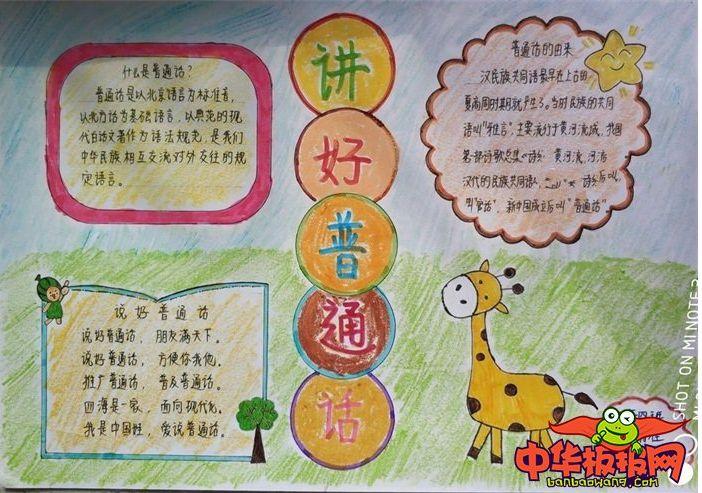 什么是普通话？
普通话是以北京语言为标准音，
以北方话为基础语言，以典范的现
代白话文著作为语法规范，是我们
中华民族相互交流对外交往的规
定语言。
讲
好
普
通
话
普通话的由来
汉民族共同语最早在上古的
夏商周时期就产生了。当时民族的共同
语叫"雅言"，主要流行于黄河流域，我国
第一部诗歌总集
黄河流，河洛
汉代的民族共同语
后叫
叫"官话"，新中国成立后叫"普通话"。
说好普通话
说好普通话，朋友满天下。
说好普通话，方便你我他。
推广普通话，普及普通话。
四海是一家，面向现代化。
我是中国娃，爱说普通话。
SHOT ON MI NOTE 3
中华板报网
banbaowang.com